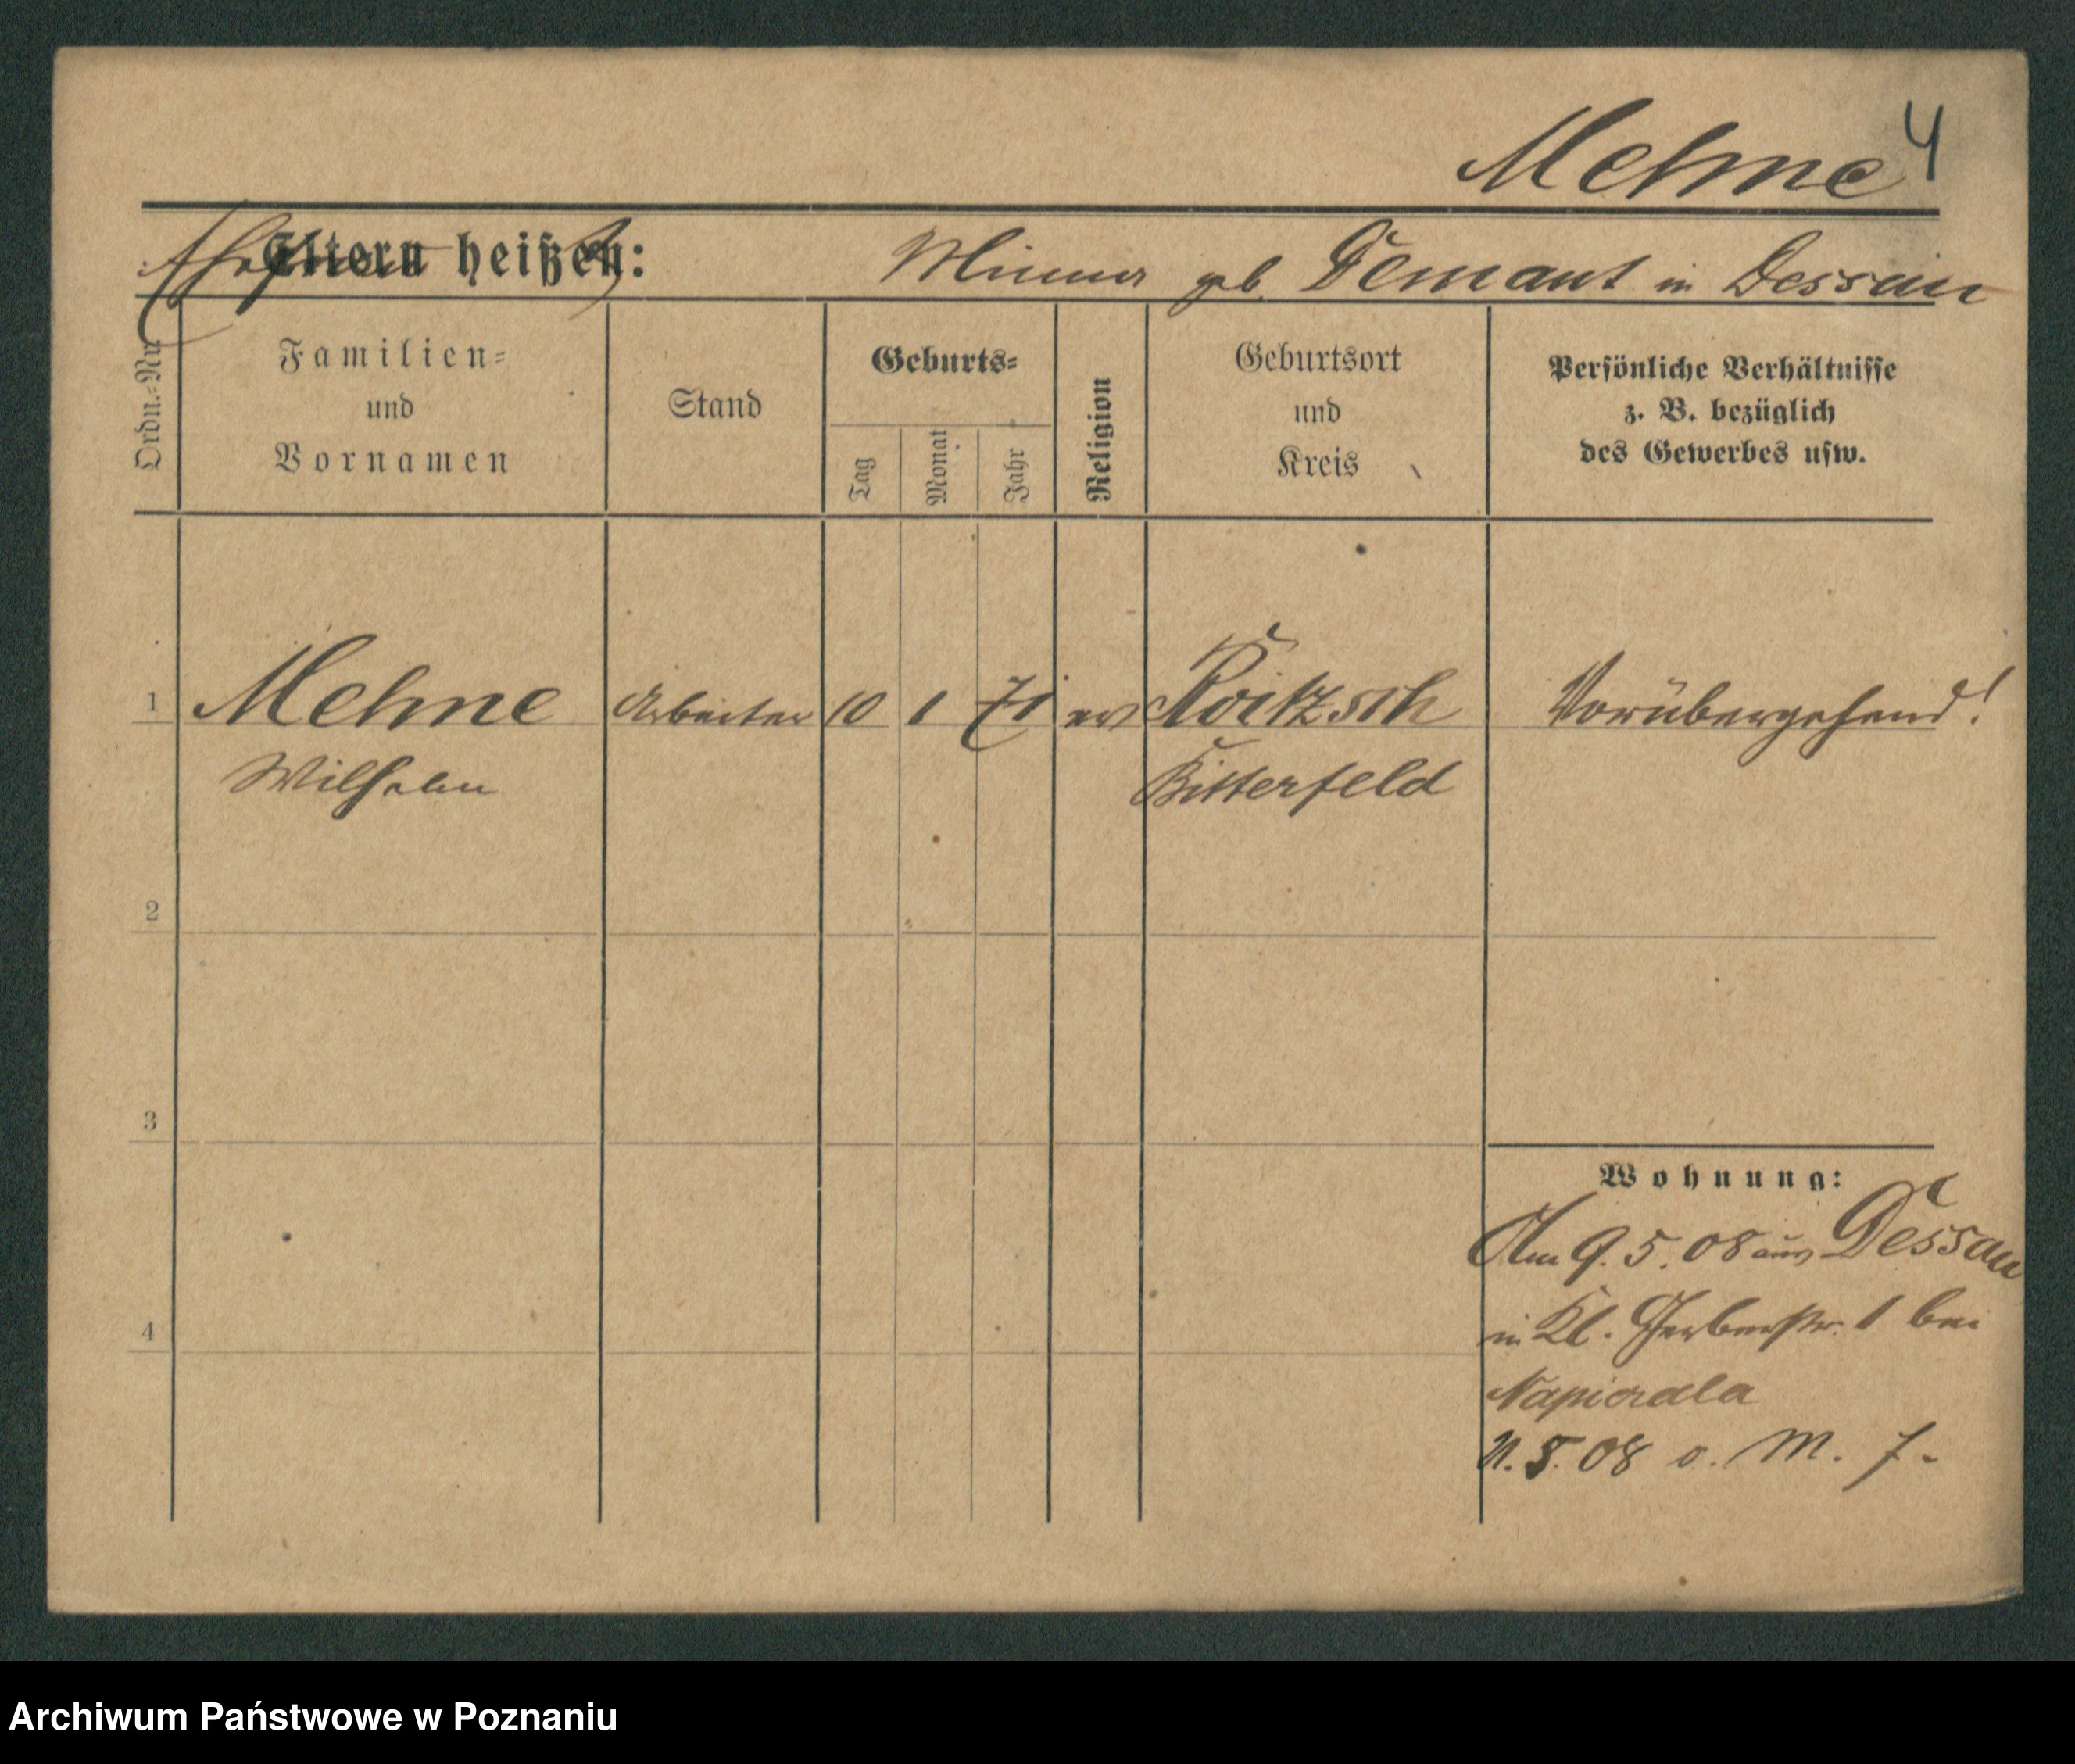 Mehne 4
Eltern heißen: Minna geb. Demant in Dessau
Ordn.-Nr.
Familien-
und
Vornamen
Stand
Geburts-
Tag
Monat
Jahr
Religion
Geburtsort
und
Kreis
Persönliche Verhältnisse
z. B. bezüglich
des Gewerbes usw.
1 Mehne Arbeiter 10 1 71 ev Roitzsch Vorübergehend!
Wilhelm Bitterfeld
2
3
Wohnung:
Am 9.5.08 aus Dessau
4 in Kl. Gerberstr. 1 bei
Napierala
11.5.08 o. M. 7-
Archiwum Państwowe w Poznaniu